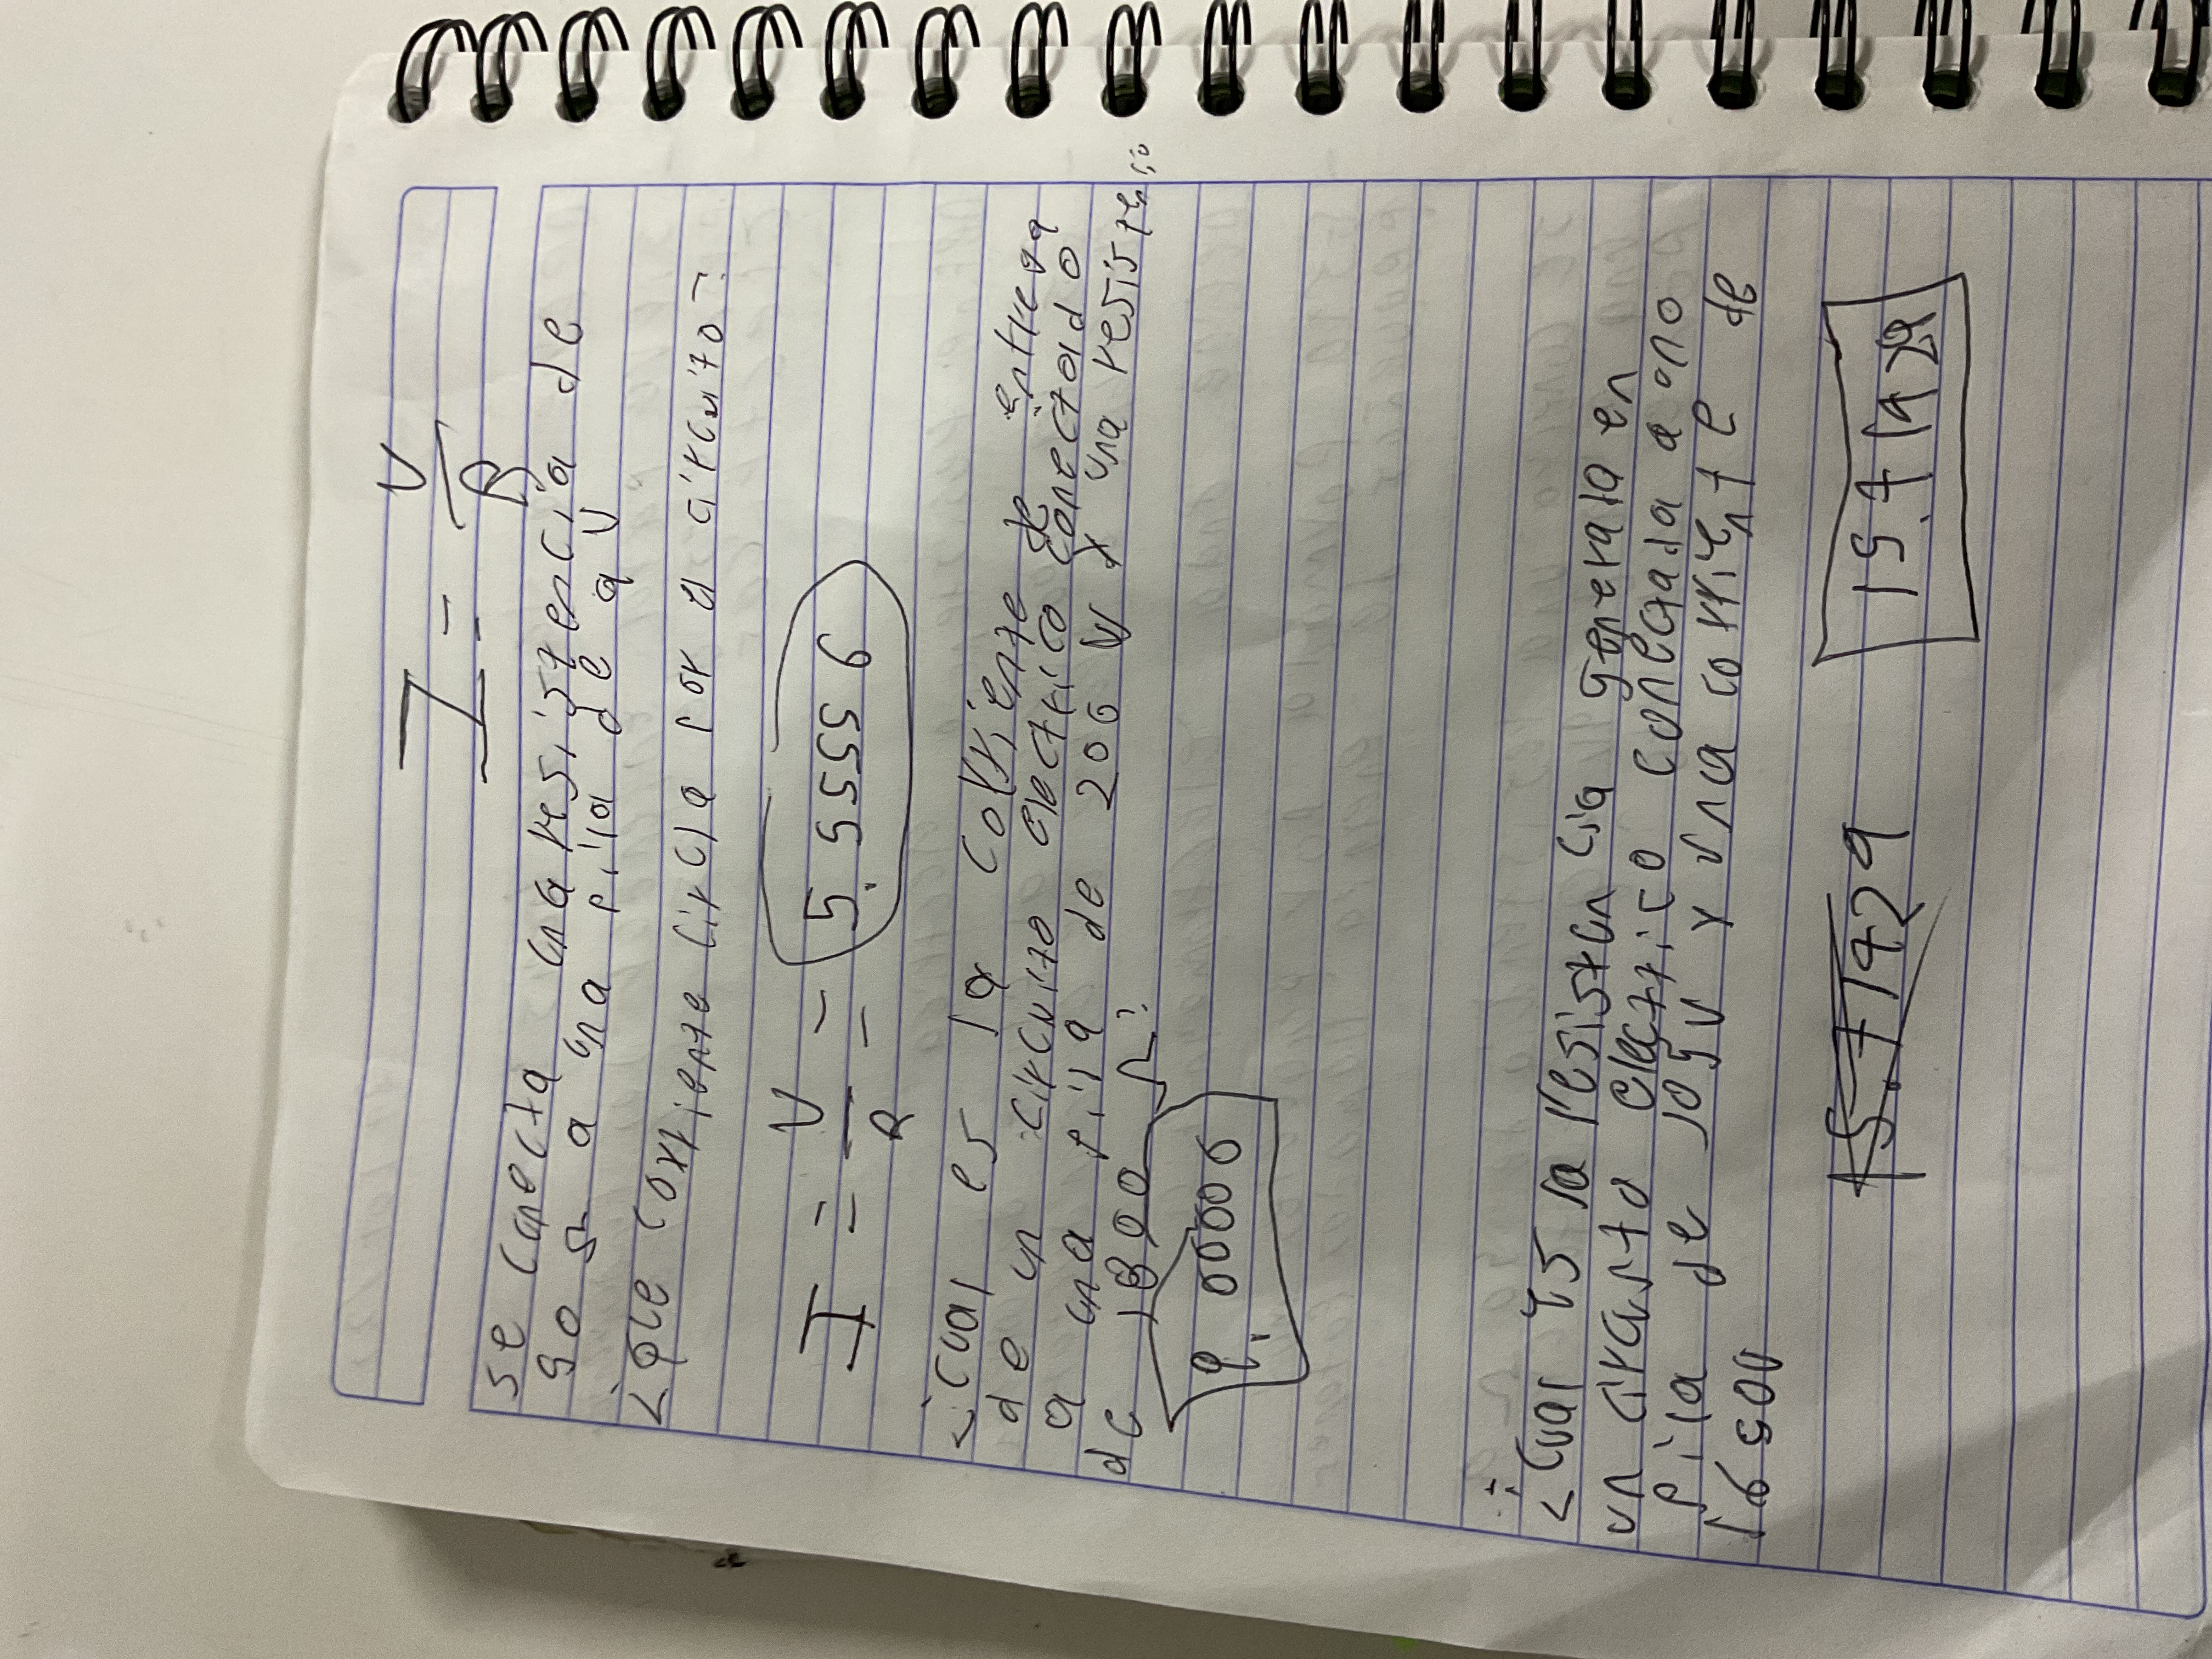 I = V
R
se conecta una resistencia de
90 Ω a una pila de 9 V
¿que corriente circula por el circuito?
I = V = 5.5555 6
R
¿cual es la corriente entrega
de un circuito electrico conectado
a una pila de 200 V y una resisten
de 1800 Ω?
0000 6
¿cual es la resistencia generada en
un circuito electrico conectada a uno
pila de 105 V y una corriente de
15.7142